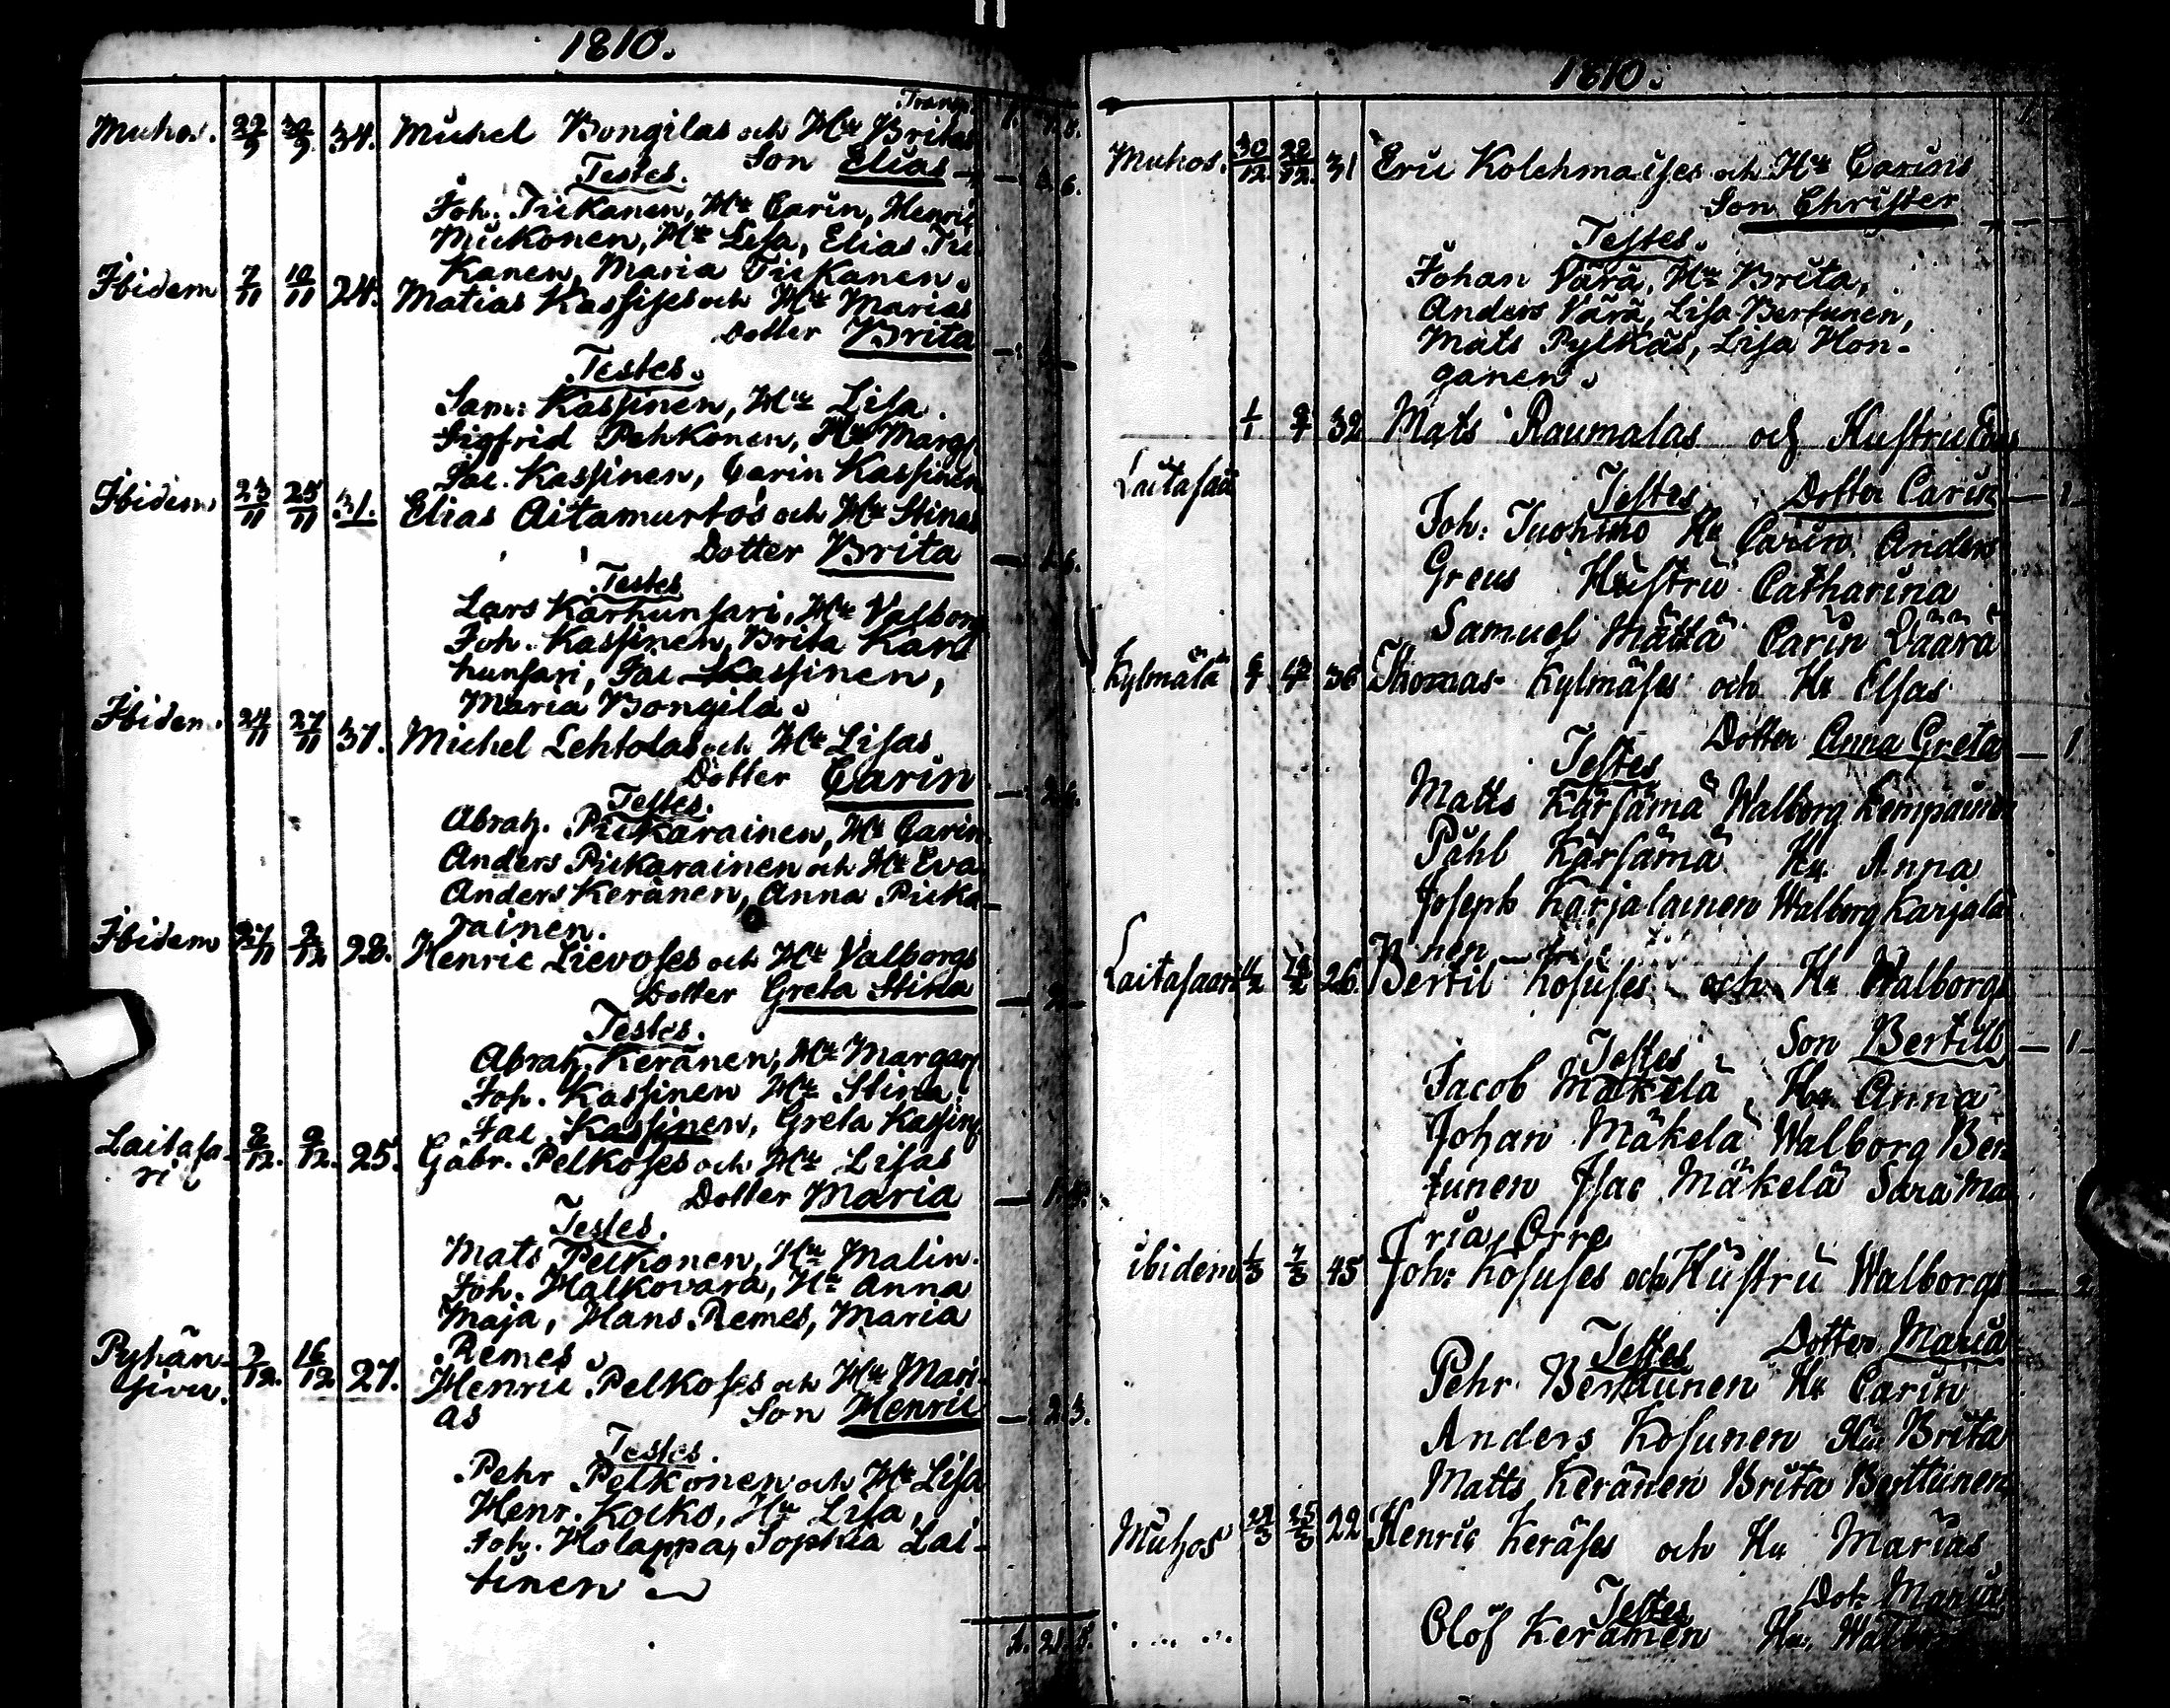 1810.
Transp.
Muhos. 22/9 30/9 34. Michel Bongilas och Hu Britas
Son Elias
Testes.
Joh. Tiikanen, Hu Carin, Henric
Muikonen, Hu Lisa, Elias Tii
kanen, Maria Tiikanen.
Ibidem 7/11 10/11 28. Matias Kassises och Hu Marias
Dotter Brita
Testes.
Sam: Kassinen, Hu Lisa.
Sigfrid Pehkonen, Hu Marg
Jac. Kassinen, Carin Kassinen
Ibidem 23/11 25/11 31. Elias Aitamurtos och Hu Stinas
Dotter Brita
Testes
Lars Karhunsari, Hu Valborg
Joh. Kassinen, Brita Kar
hunsari, Jac Kassinen,
Maria Bongila.
Ibidem. 24/11 27/11 37. Michel Lehtolas och Hu Lisas
Dotter Carin
Testes.
Abrah. Piikarainen, Hu Carin
Anders Piikarainen och Hu Eva
Anders Keränen, Anna Piika-
rainen.
Ibidem 2/12 28. Henric Lievoses och Hu Valborgs
Dotter Greta Stina
Testes.
Abrah. Keränen, Hu Margar
Joh. Kassinen Hu Stina.
Jac. Kassinen, Greta Kassin
Laitasa- 8/12. 9/12. 25. Gabr. Pelkoses och Hu Lisas
ri
Dotter Maria
Testes.
Mats Pelkonen, Hu Malin.
Joh. Halkovara, Hu Anna
Maja, Hans Remes, Maria
Remes.
Pyhän- 7/12. 16/12 27. Henric Pelkoses och Hu Mari-
sivu. as Son Henric
Testes.
Pehr Pelkonen och Hu Lisa
Henr. Kocko, Hu Lisa,
Joh. Holappa, Sophia Lai-
tinen
1810.
Muhos. 30/12. 31 Eric Kolehmaises och Hu Carins
Son Christer
Testes.
Johan Vära, Hu Brita,
Anders Värä, Lisa Bertunen,
Mats Pylkäs, Lisa Hon-
ganen.
1/1 32 Mats Raumalas och Hustru
Laitasaari
Testes Dotter Carin
Joh: Tuohino Hu Carin Anders
Greus Hustru Catharina
Samuel Mättä Carin Väärä
Kylmälä 36 Thomas Kylmäses och Hu Elsas
Dotter Anna Greta
Testes
Matts Kärsämä Walborg Kempainen
Påhl Kärsämä Hu. Anna
Joseph Karjalainen Walborg Karjalai
nen
Laitasaari 26. Bertil Kosuses och Hu Walborgs
Son Bertill
Testes
Jacob Mäkelä Hu Anna
Johan Mäkelä Walborg Ber
tunen Isac Mäkelä Sara Ma
ria Orre
ibidem 1/3 4/3 45 Joh: Kosuses och Hustru Walborgs
Dotter Maria
Testes
Pehr Berttunen Hu Carin
Anders Kosunen Hu Brita
Matts Keränen Brita Berttunen
Muhos 25/3 22 Henric Keräses och Hu Marias
Dot: Maria
Testes
Olof Keränen Hu.